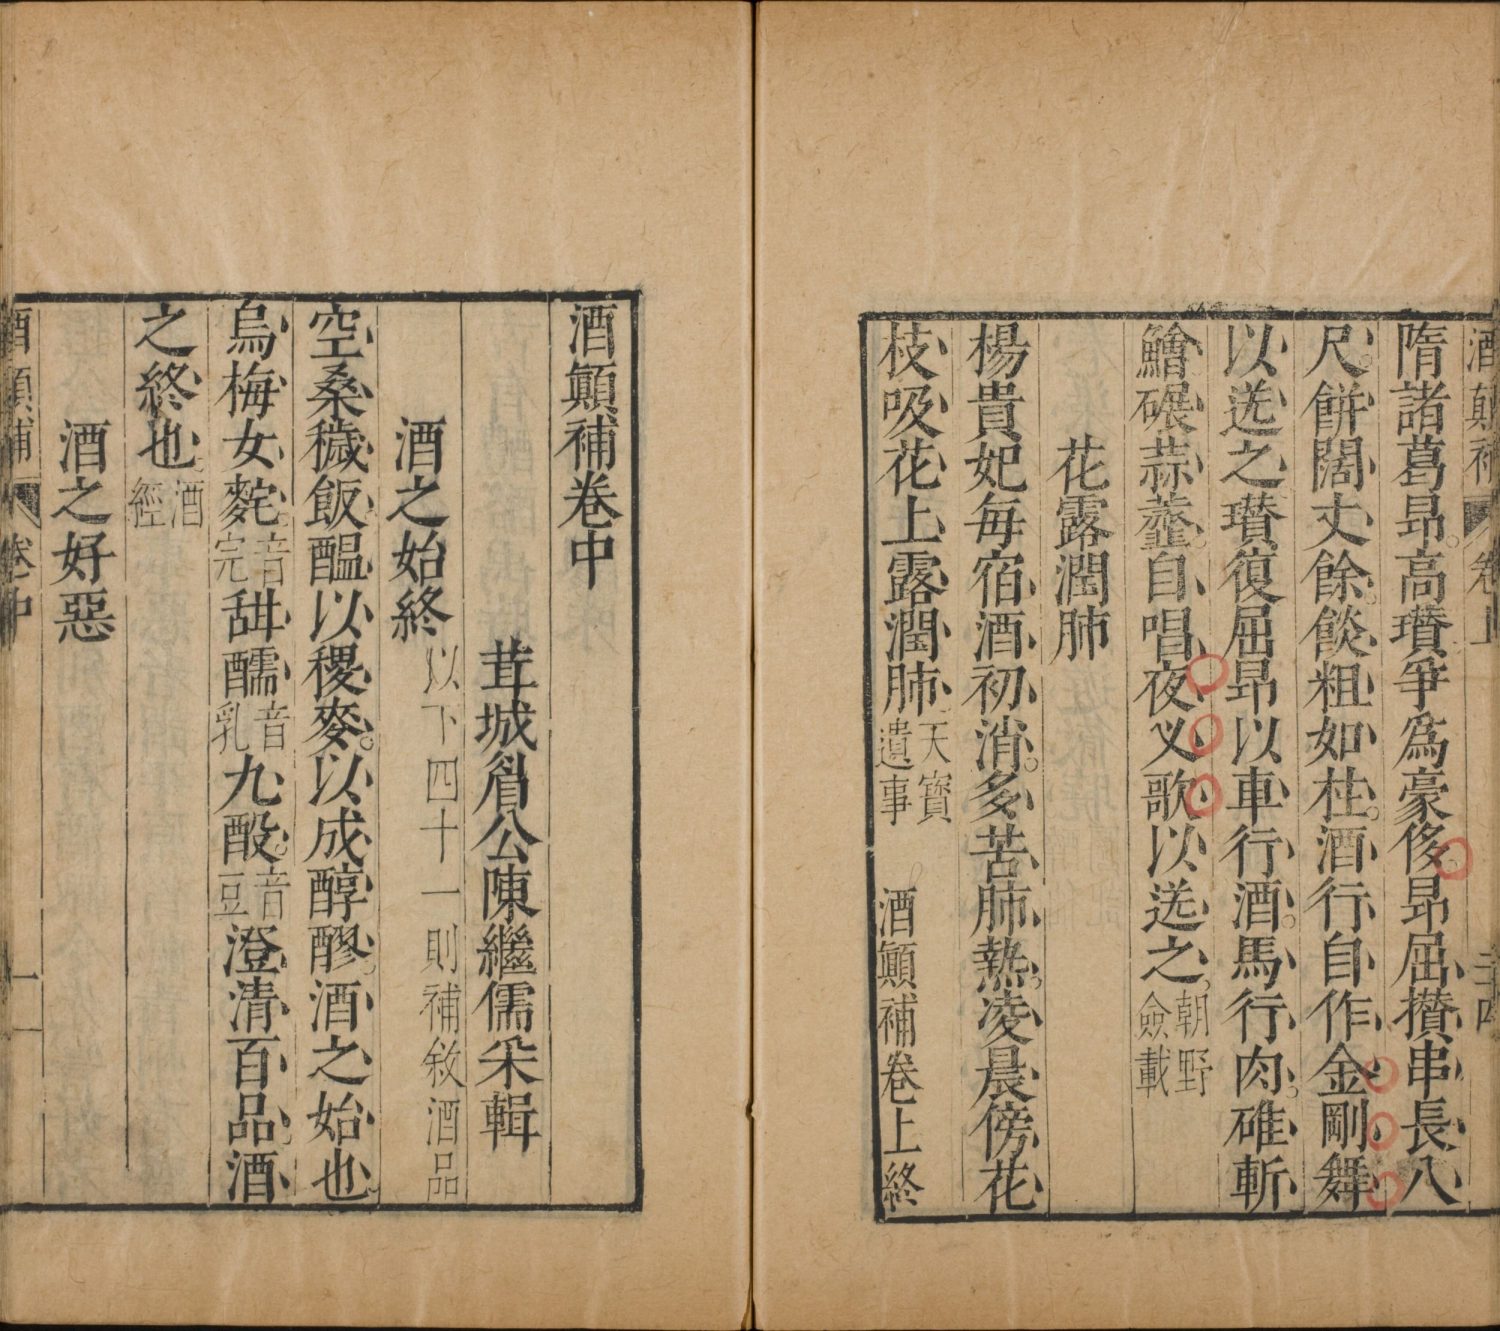 酒顛補 卷上 三十四
隋諸葛昂高瓚爭爲豪侈昂屈攢串長八
尺餅闊丈餘餤粗如柱酒行自作金剛舞
以送之瓚復屈昂以車行酒馬行肉碓斬
鱠碾蒜虀自唱夜叉歌以送之朝野僉載
花露潤肺
楊貴妃每宿酒初消多苦肺熱凌晨傍花
枝吸花上露潤肺天寶遺事 酒顛補卷上終
酒顛補卷中
茸城眉公陳繼儒采輯
酒之始終以下四十一則補敘酒品
空桑穢飯醞以稷麥以成醇醪酒之始也
烏梅女䴷音完甜醹音乳九酘音豆澄清百品酒
之終也酒經
酒之好惡
酒顛補 卷中 一